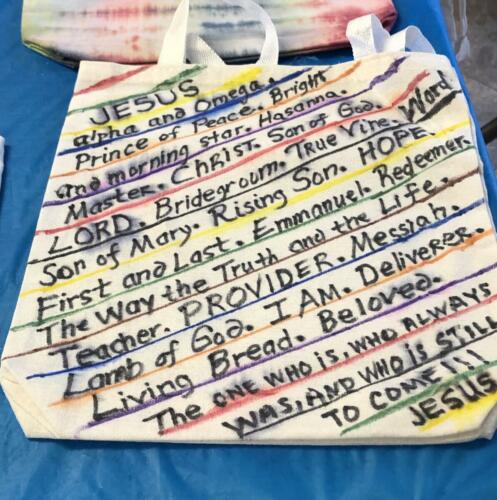 JESUS
alpha and Omega.
Prince of Peace. Bright
and morning star. Hosanna.
Master. Christ. Son of God. Word
LORD. Bridegroom. True Vine.
Son of Mary. Rising Son. HOPE.
First and Last. Emmanuel. Redeemer.
The Way the Truth and the Life.
Teacher. PROVIDER. Messiah.
Lamb of God. I AM. Deliverer.
Living Bread. Beloved.
The ONE WHO IS, WHO ALWAYS
WAS, AND WHO IS STILL
TO COME!!!
JESUS